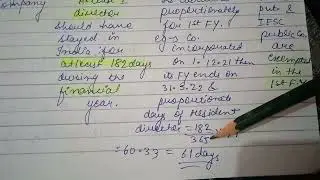 company director proportionately pub &
should have for 1st FY. IFSC
stayed in eg→ Co. public Co.
India for incorporated are
atleast 182 days on 1.12.21 then exempted
during the its FY ends on in the
financial 31.3.22 & 1st F.Y.
year. proportionate
days of Resident
director = 182
365
= 60.33 = 61 days